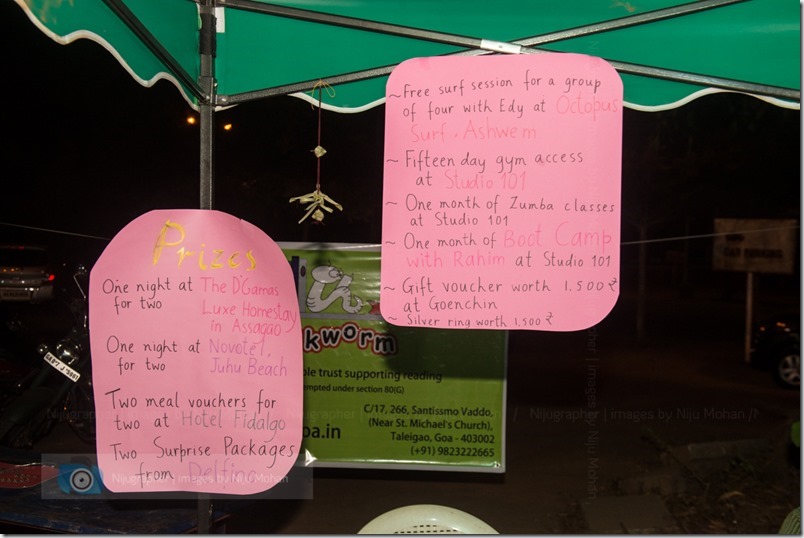 Prizes
One night at The D'Gamas
for two Luxe Homestay
in Assagao
One night at Novotel,
for two Juhu Beach
Two meal vouchers for
two at Hotel Fidalgo
Two Surprise Packages
from Delfino
~ Free surf session for a group
of four with Edy at Octopus
Surf, Ashwem
~ Fifteen day gym access
at Studio 101
~ One month of Zumba classes
at Studio 101
~ One month of Boot Camp
with Rahim at Studio 101
~ Gift voucher worth 1.500 ₹
at Goenchin
~ Silver ring worth 1,500 ₹
kworm
ble trust supporting reading
empted under section 80(G)
C/17, 266, Santissmo Vaddo,
(Near St. Michael's Church),
Taleigao, Goa - 403002
(+91) 9823222665
oa.in
Nijugrapher | images by Niju Mohan